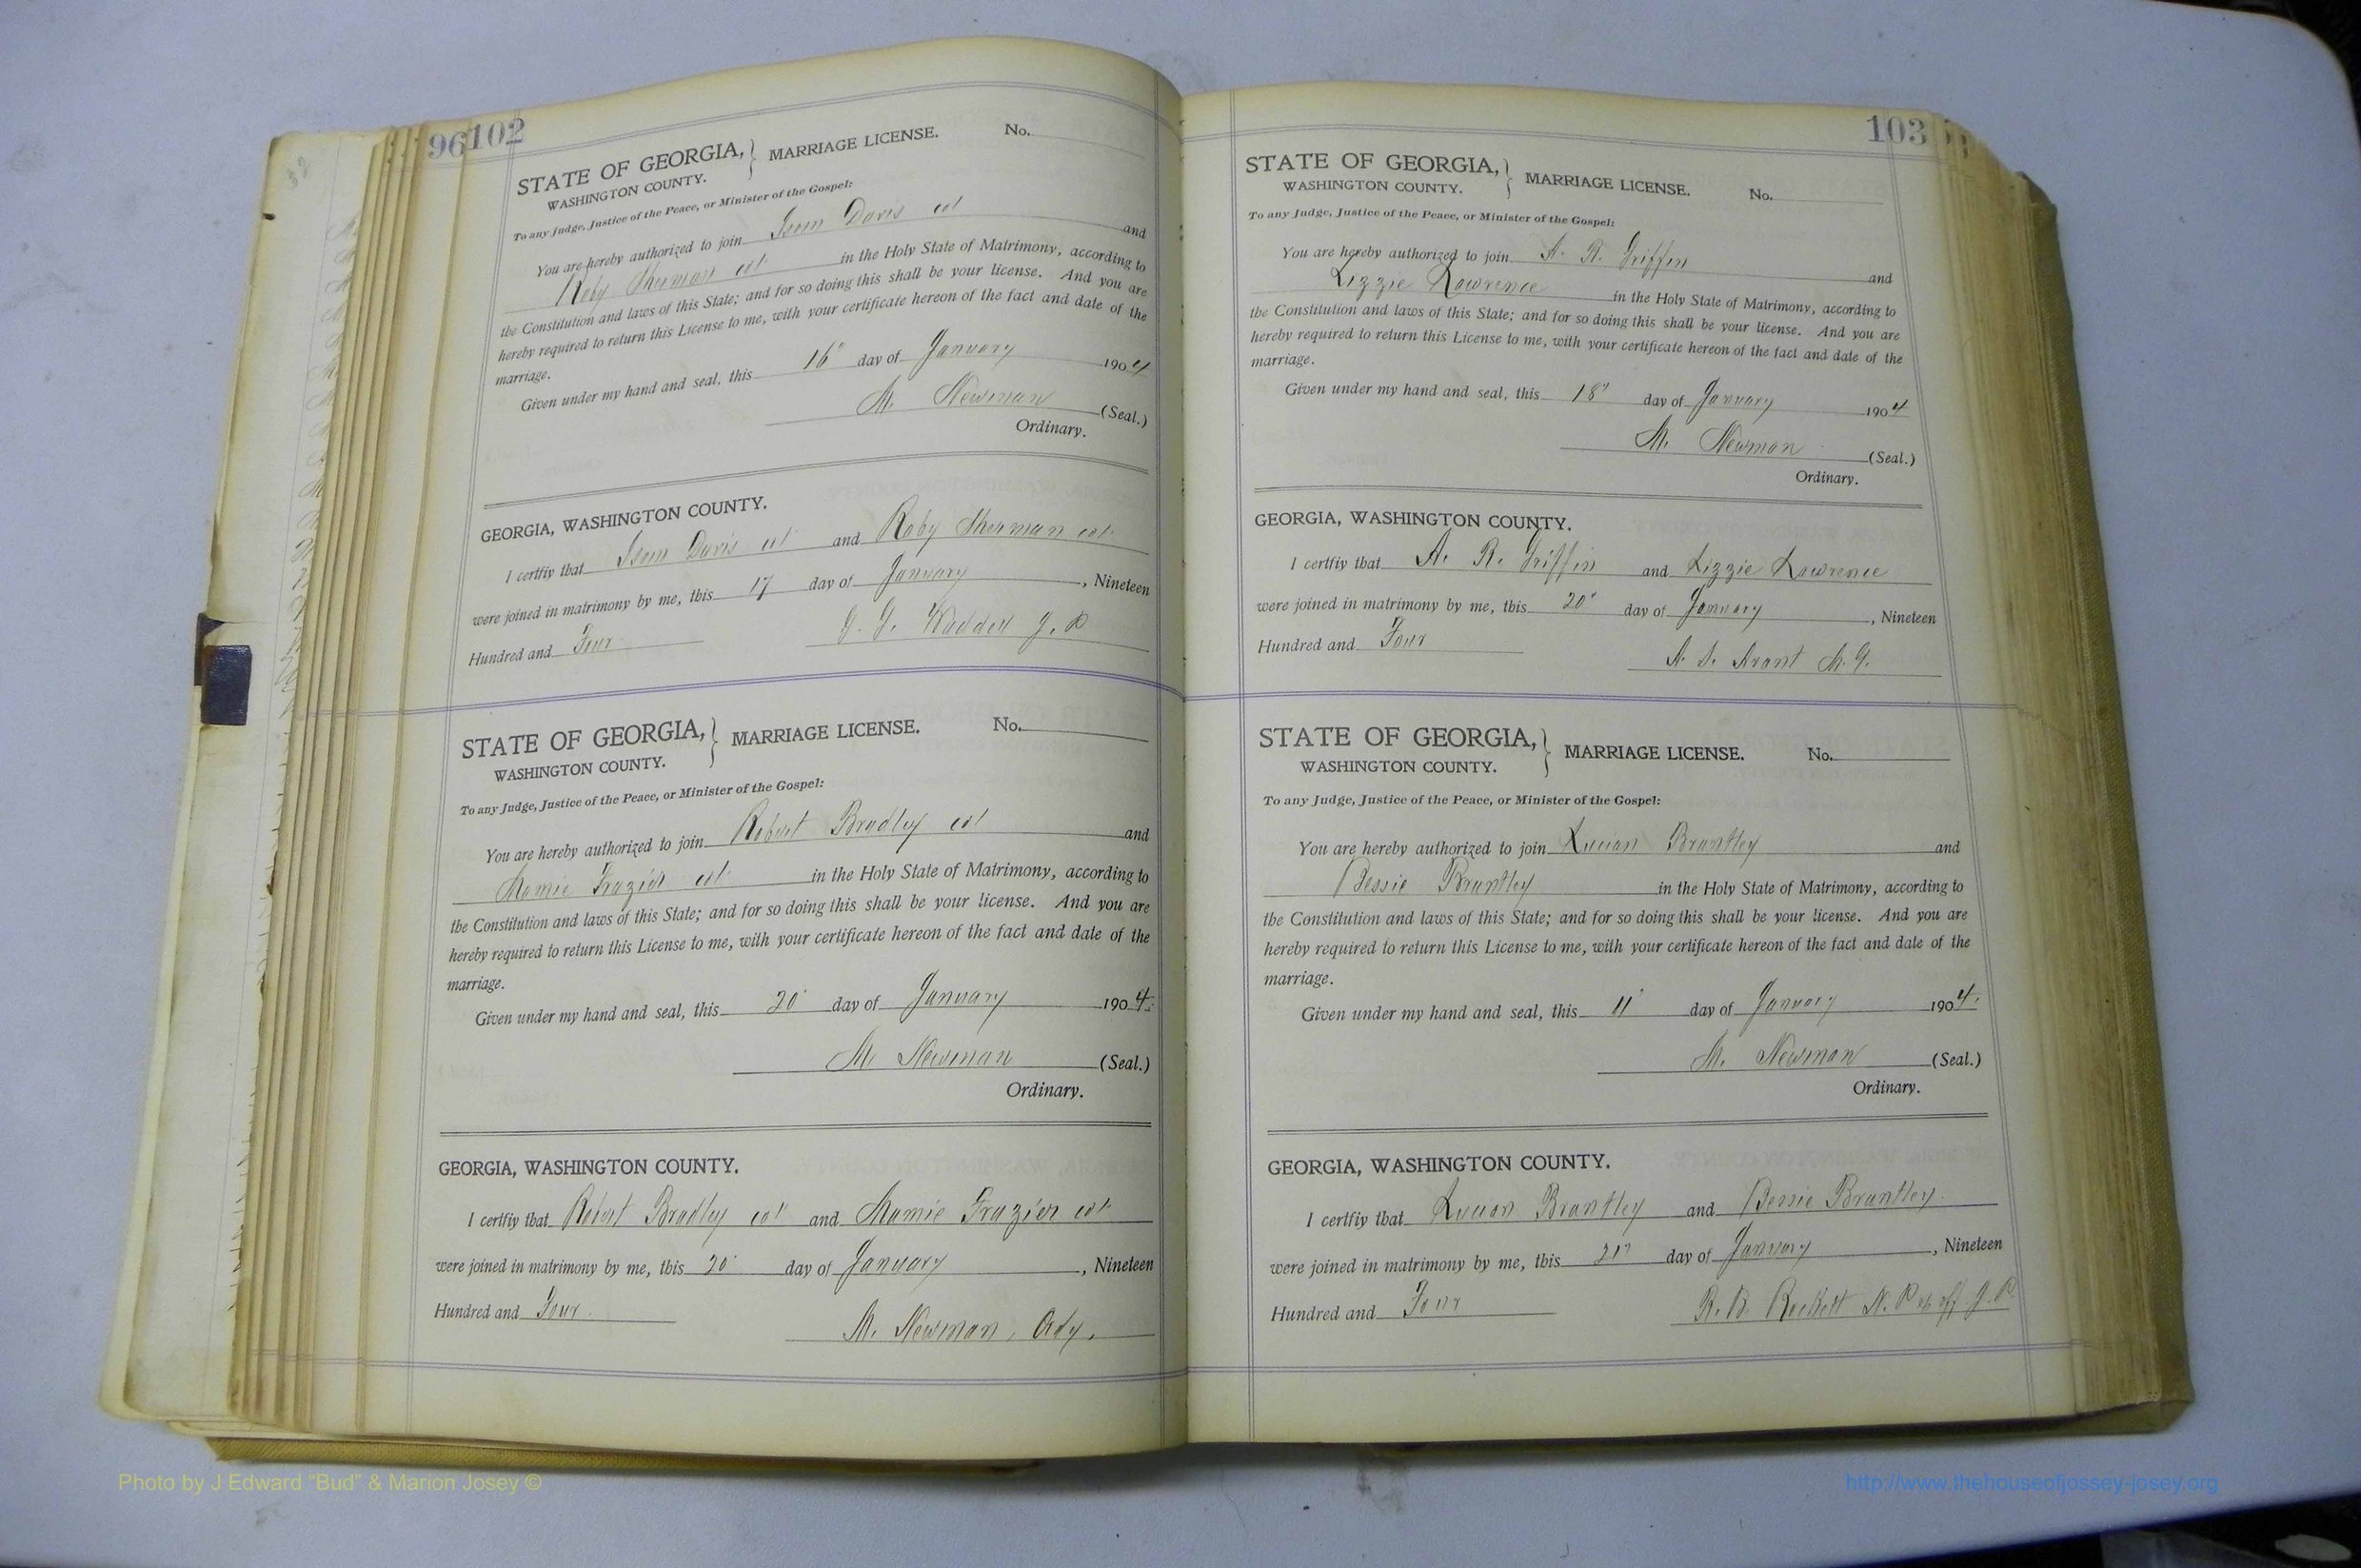 96 102
STATE OF GEORGIA, } MARRIAGE LICENSE. No.
WASHINGTON COUNTY.
To any Judge, Justice of the Peace, or Minister of the Gospel:
You are hereby authorized to join Isom Davis col and
Roby Sherman col in the Holy State of Matrimony, according to
the Constitution and laws of this State; and for so doing this shall be your license. And you are
hereby required to return this License to me, with your certificate hereon of the fact and date of the
marriage.
Given under my hand and seal, this 16" day of January 1904
M. Newman (Seal.)
Ordinary.
GEORGIA, WASHINGTON COUNTY.
I certfiy that Isom Davis col and Roby Sherman col.
were joined in matrimony by me, this 17 day of January, Nineteen
Hundred and Four
J. P
STATE OF GEORGIA, } MARRIAGE LICENSE. No.
WASHINGTON COUNTY.
To any Judge, Justice of the Peace, or Minister of the Gospel:
You are hereby authorized to join Robert Bradley col and
Mamie Frazier col in the Holy State of Matrimony, according to
the Constitution and laws of this State; and for so doing this shall be your license. And you are
hereby required to return this License to me, with your certificate hereon of the fact and date of the
marriage.
Given under my hand and seal, this 20" day of January 1904.
M. Newman (Seal.)
Ordinary.
GEORGIA, WASHINGTON COUNTY.
I certfiy that Robert Bradley col and Mamie Frazier col
were joined in matrimony by me, this 20" day of January, Nineteen
Hundred and Four.
M. Newman, Ordy.
103
STATE OF GEORGIA, } MARRIAGE LICENSE. No.
WASHINGTON COUNTY.
To any Judge, Justice of the Peace, or Minister of the Gospel:
You are hereby authorized to join A. R. Griffin and
Lizzie Lawrence in the Holy State of Matrimony, according to
the Constitution and laws of this State; and for so doing this shall be your license. And you are
hereby required to return this License to me, with your certificate hereon of the fact and date of the
marriage.
Given under my hand and seal, this 18" day of January 1904
M. Newman (Seal.)
Ordinary.
GEORGIA, WASHINGTON COUNTY.
I certfiy that A. R. Griffin and Lizzie Lawrence
were joined in matrimony by me, this 20" day of January, Nineteen
Hundred and Four
Arant M. G.
STATE OF GEORGIA, } MARRIAGE LICENSE. No.
WASHINGTON COUNTY.
To any Judge, Justice of the Peace, or Minister of the Gospel:
You are hereby authorized to join Lucian Brantley and
Bessie Brantley in the Holy State of Matrimony, according to
the Constitution and laws of this State; and for so doing this shall be your license. And you are
hereby required to return this License to me, with your certificate hereon of the fact and date of the
marriage.
Given under my hand and seal, this 11" day of January 1904.
M. Newman (Seal.)
Ordinary.
GEORGIA, WASHINGTON COUNTY.
I certfiy that Lucian Brantley and Bessie Brantley.
were joined in matrimony by me, this day of January, Nineteen
Hundred and Four
N. P. J. P.
Photo by J Edward “Bud” & Marion Josey ©
http://www.thehouseofjossey-josey.org